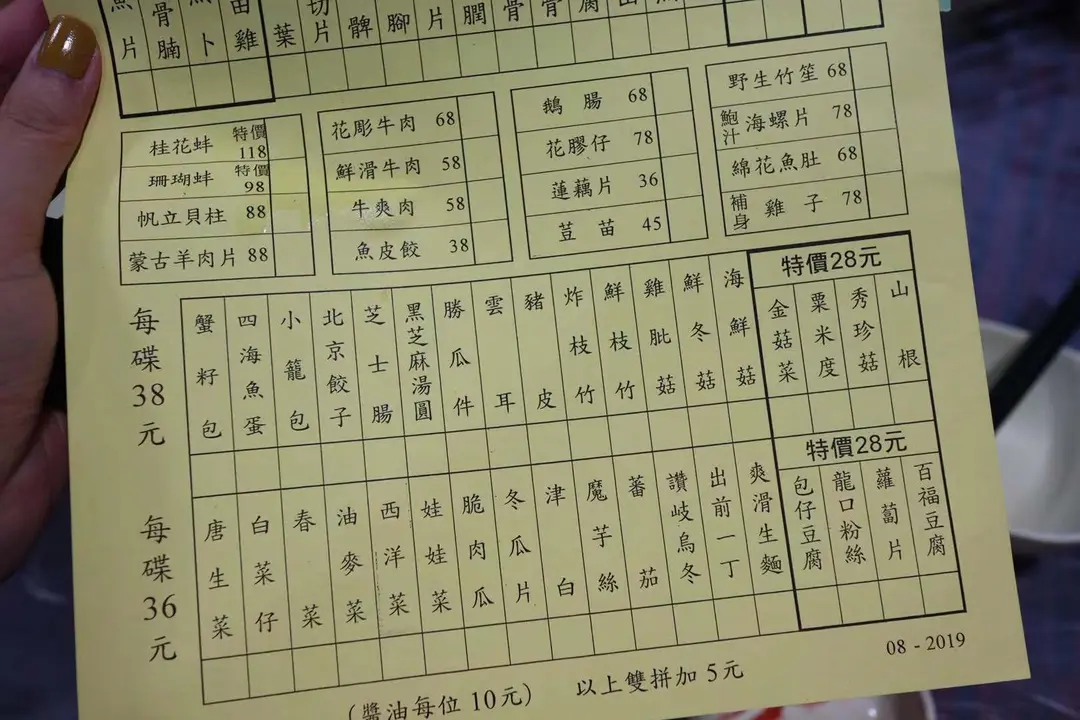 魚片
骨腩
卜
苗雞
葉
切片
髀
腳
片
膶
骨
骨
腐
桂花蚌 特價118
珊瑚蚌 特價98
帆立貝柱 88
蒙古羊肉片 88
花彫牛肉 68
鮮滑牛肉 58
牛爽肉 58
魚皮餃 38
鵝腸 68
花膠仔 78
蓮藕片 36
荳苗 45
野生竹笙 68
鮑汁海螺片 78
綿花魚肚 68
補身雞子 78
每碟38元
蟹籽包
四海魚蛋
小籠包
北京餃子
芝士腸
黑芝麻湯圓
勝瓜件
雲耳
豬皮
炸枝竹
鮮枝竹
雞肶菇
鮮冬菇
海鮮菇
特價28元
金菇菜
粟米度
秀珍菇
山根
每碟36元
唐生菜
白菜仔
春菜
油麥菜
西洋菜
娃娃菜
脆肉瓜
冬瓜片
津白
魔芋絲
蕃茄
讚岐烏冬
出前一丁
爽滑生麵
特價28元
包仔豆腐
龍口粉絲
蘿蔔片
百福豆腐
08 - 2019
(醬油每位10元) 以上雙拼加5元